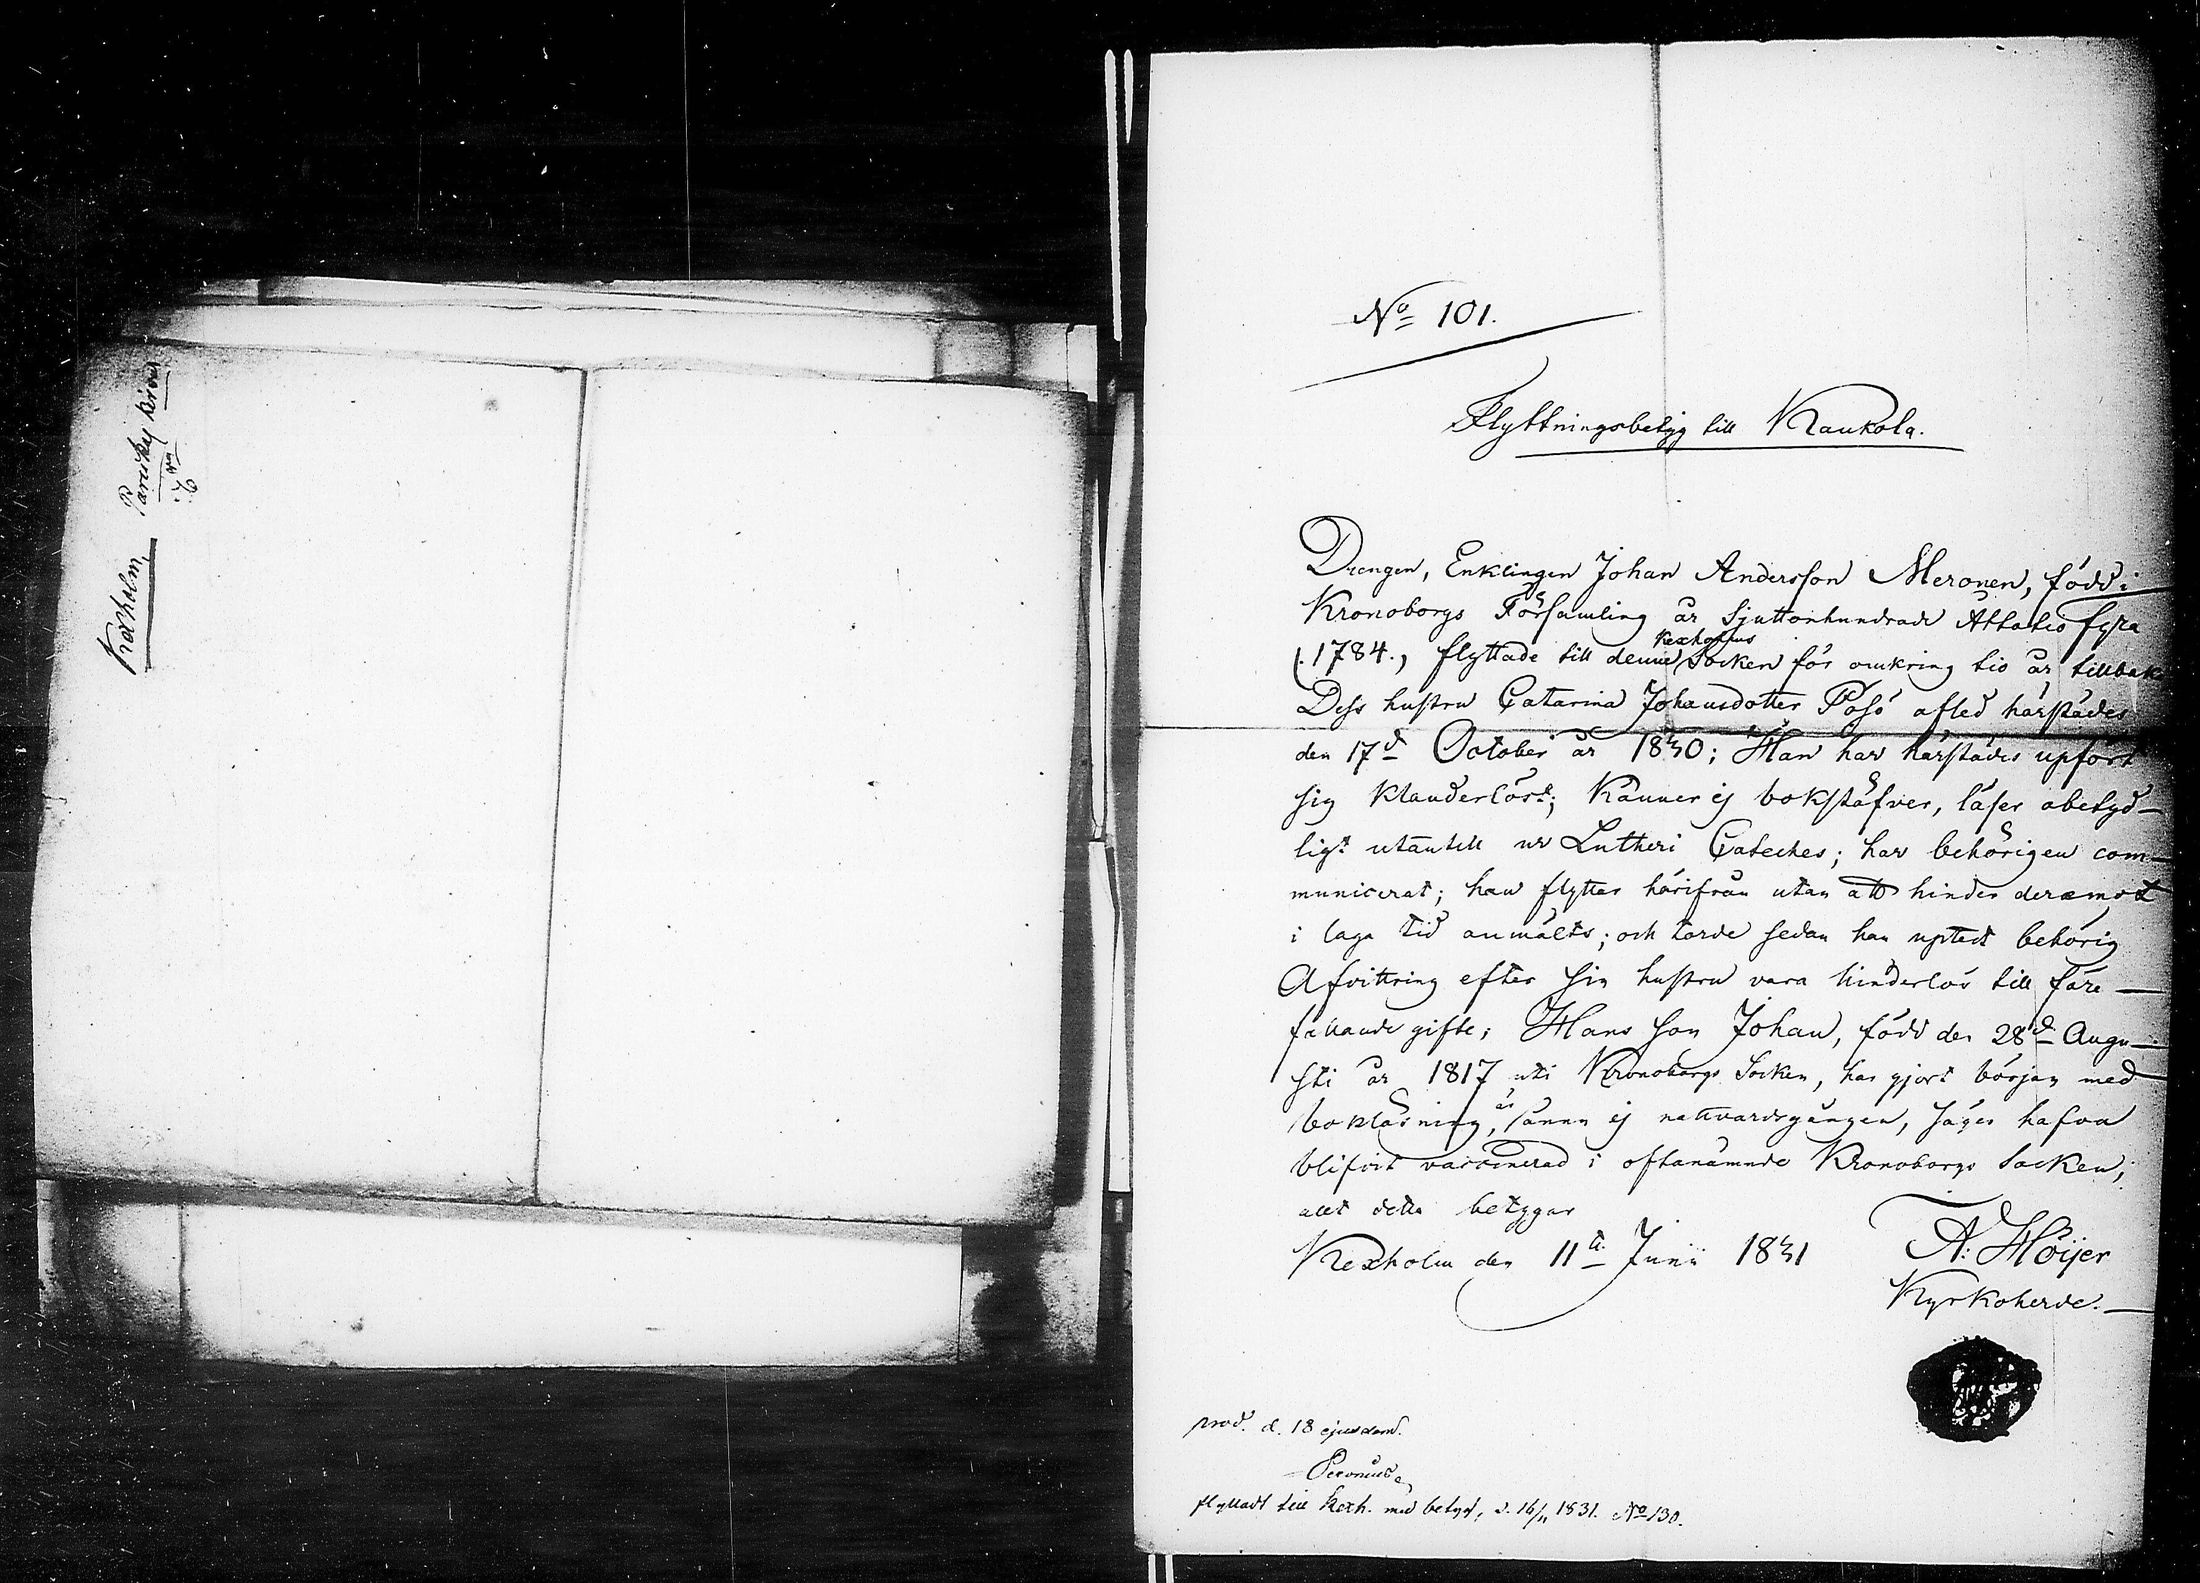 Kexholm,
№ 101.
Flyttningsbetyg till Kaukola.
Drengen, Enklingen Johan Andersson Meronen, född i
Kronoborgs Församling år Sjuttonhundrade Åttatio fyra
(1784., flyttade till denne Kexholms Socken för omkring tio år tillbak
Dess hustru Catarina Johansdotter Pösö afled härstädes
den 17d October år 1830; Han har härstädes upfört
sig klanderlöst; Känner ej bokstäfver, läser obetyd-
ligt utantill ur Lutheri Cateches; har behörigen com-
municerat; han flyttar härifrån utan att hinder deremot
i laga tid anmälts; och torde sedan han uptedt behörig
Afvittring efter sin hustru vara hinderlös till före
fallande gifte; Hans son Johan, född den 28d Augu-
sti år 1817 uti Kronoborgs Socken, har gjort början med
bokläsning, är ännu ej nattvardsgången, säges hafva
blifvit vaccinerad i oftanämnde Kronoborgs Socken,
allt detta betygar
Kexholm den 11te Junii 1831 A: Höijer
Kyrkoherde.
prod. d. 18 ejusdem.
flyttadt till Kexh. med betyg, d. 16/11 1831. № 130.